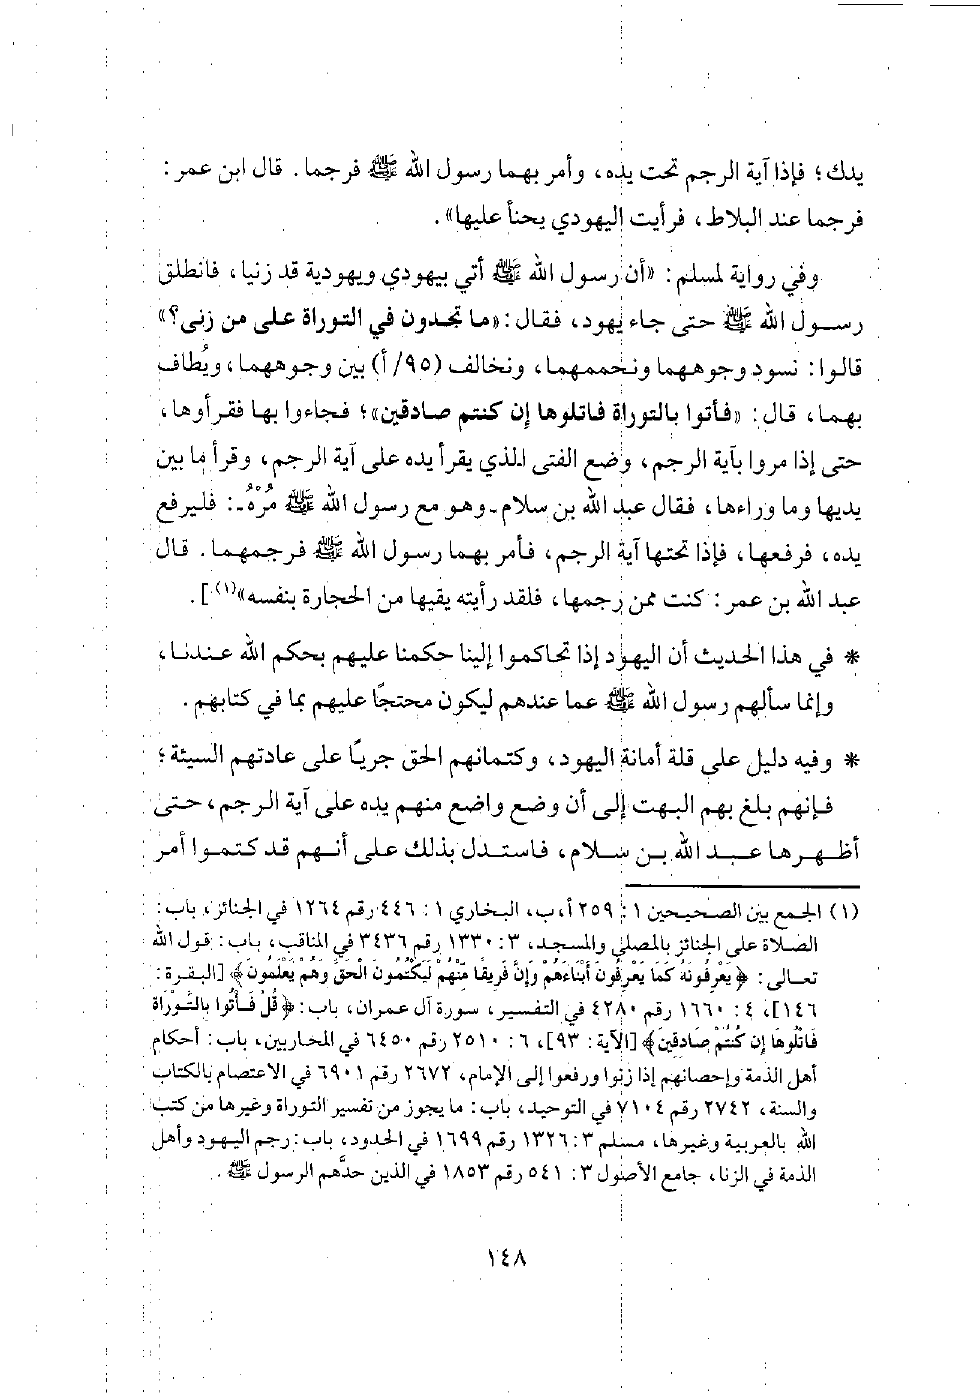 يدك؛ فإذا آية الرجم تحت يده، وأمر بهما رسول الله ﷺ فرجما. قال ابن عمر:
فرجما عند البلاط، فرأيت اليهودي يحنأ عليها».
وفي رواية لمسلم: «أن رسول الله ﷺ أتي بيهودي ويهودية قد زنيا، فانطلق
رسول الله ﷺ حتى جاء يهود، فقال: «ما تجدون في التوراة على من زنى؟»
قالوا: نسود وجوههما ونحممهما، ونخالف (٩٥/أ) بين وجوههما، ويُطاف
بهما، قال: «فأتوا بالتوراة فاتلوها إن كنتم صادقين»؛ فجاءوا بها فقرأوها،
حتى إذا مروا بآية الرجم، وضع الفتى الذي يقرأ يده على آية الرجم، وقرأ ما بين
يديها وما وراءها، فقال عبد الله بن سلام ـ وهو مع رسول الله ﷺ مُرْهُ ـ: فليرفع
يده، فرفعها، فإذا تحتها آية الرجم، فأمر بهما رسول الله ﷺ فرجمهما. قال
عبد الله بن عمر: كنت ممن رجمها، فلقد رأيته يقيها من الحجارة بنفسه»(١)].
* في هذا الحديث أن اليهود إذا تحاكموا إلينا حكمنا عليهم بحكم الله عندنا،
وإنما سألهم رسول الله ﷺ عما عندهم ليكون محتجًا عليهم بما في كتابهم.
* وفيه دليل على قلة أمانة اليهود، وكتمانهم الحق جريًا على عادتهم السيئة؛
فإنهم بلغ بهم البهت إلى أن وضع واضع منهم يده على آية الرجم، حتى
أظهرها عبد الله بن سلام، فاستدل بذلك على أنهم قد كتموا أمر
(١) الجمع بين الصحيحين ١: ٢٥٩ أ، ب، البخاري ١: ٤٤٦ رقم ١٢٦٤ في الجنائز، باب:
الصلاة على الجنائز بالمصلى والمسجد، ٣: ١٣٣٠ رقم ٣٤٣٦ في المناقب، باب: قول الله
تعالى: ﴿يَعْرِفُونَهُ كَمَا يَعْرِفُونَ أَبْنَاءَهُمْ وَإِنَّ فَرِيقًا مِّنْهُمْ لَيَكْتُمُونَ الْحَقَّ وَهُمْ يَعْلَمُونَ﴾ [البقرة:
١٤٦]، ٤: ١٦٦٠ رقم ٤٢٨٠ في التفسير، سورة آل عمران، باب: ﴿قُلْ فَأْتُوا بِالتَّوْرَاةِ
فَاتْلُوهَا إِن كُنتُمْ صَادِقِينَ﴾ [الآية: ٩٣]، ٦: ٢٥١٠ رقم ٦٤٥٠ في المحاربين، باب: أحكام
أهل الذمة وإحصانهم إذا زنوا ورفعوا إلى الإمام، ٢٦٧٢ رقم ٦٩٠١ في الاعتصام بالكتاب
والسنة، ٢٧٤٢ رقم ٧١٠٤ في التوحيد، باب: ما يجوز من تفسير التوراة وغيرها من كتب
الله بالعربية وغيرها، مسلم ٣: ١٣٢٦ رقم ١٦٩٩ في الحدود، باب: رجم اليهود وأهل
الذمة في الزنا، جامع الأصول ٣: ٥٤١ رقم ١٨٥٣ في الذين حدَّهم الرسول ﷺ.
١٤٨